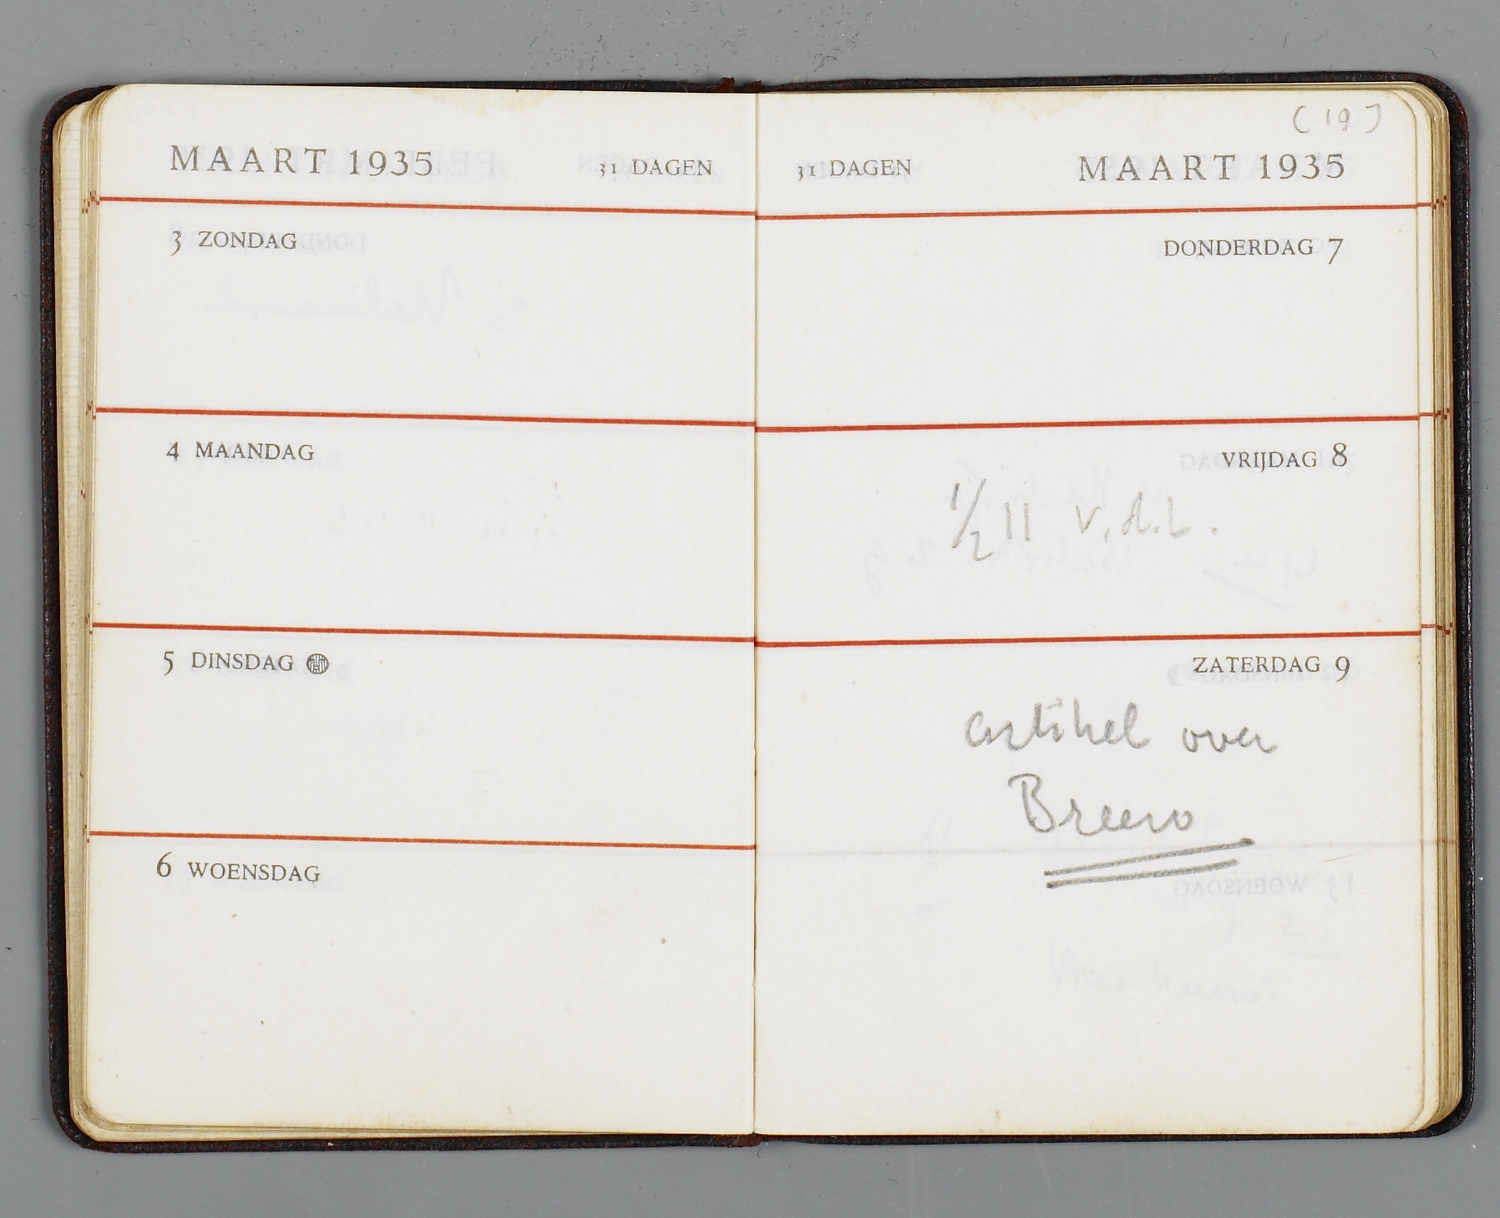 MAART 1935 31 DAGEN
3 ZONDAG
4 MAANDAG
5 DINSDAG
6 WOENSDAG
(19)
31 DAGEN MAART 1935
DONDERDAG 7
VRIJDAG 8
1/2 11 v.d.L.
ZATERDAG 9
artikel over
Breero